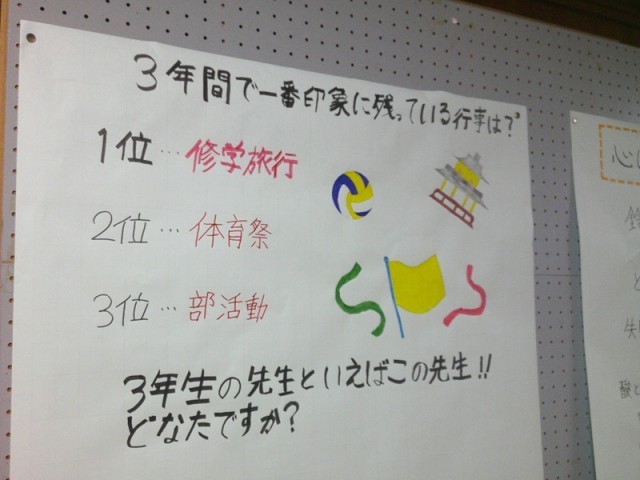 3年間で一番印象に残っている行事は?
1位…修学旅行
2位…体育祭
3位…部活動
3年生の先生といえばこの先生!!
どなたですか?
心
失
酸